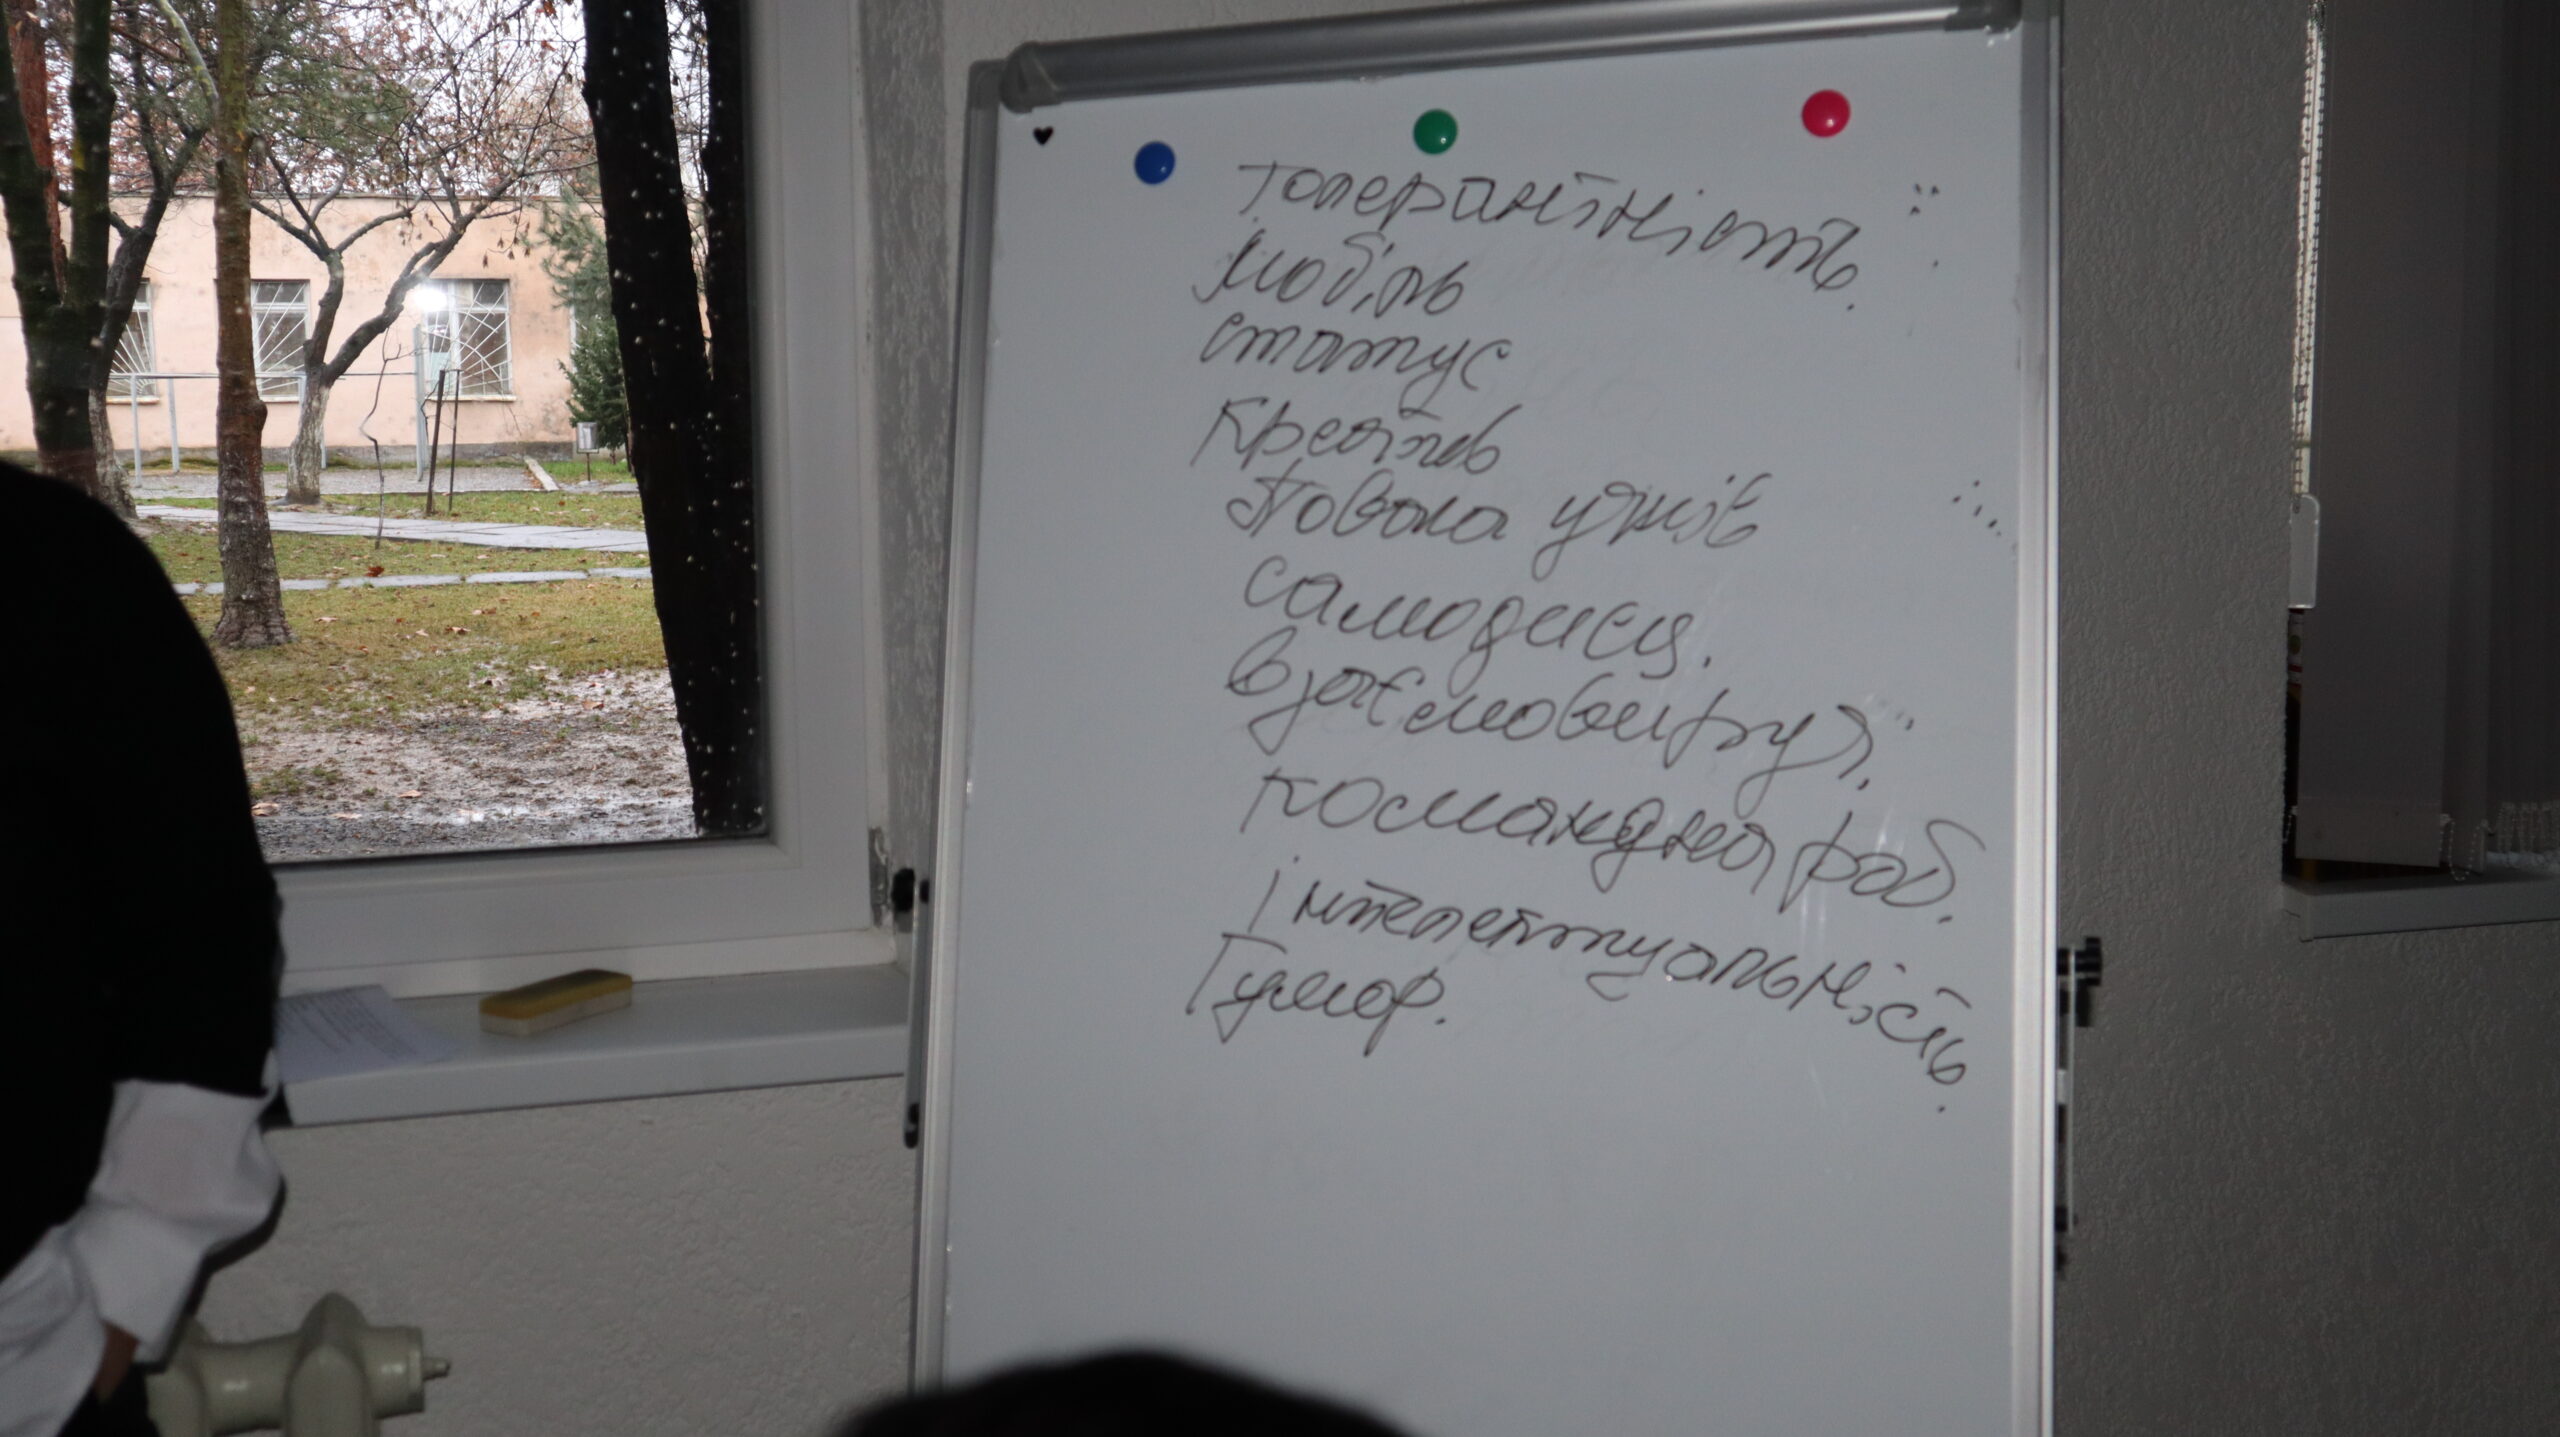 толерантність.
мобіль
статус
креатив
повага учнів
самодисц.
взаємовируч.
командна роб.
інтелектуальність.
Гумор.